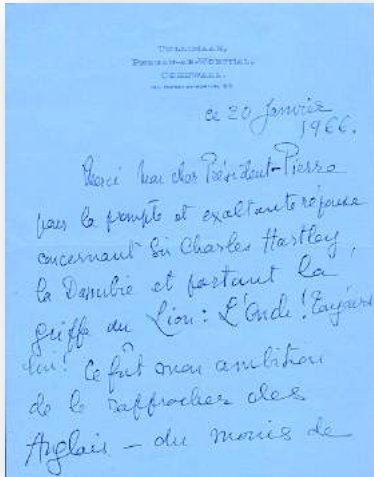 PERRAN-AR-WORTHAL,
CORNWALL.
ce 20 Janvier
1966.
Merci mon cher Président-Pierre
pour la prompte et exaltante réponse
concernant Sir Charles Hartley,
le Danube et portant la
griffe du Lion: L'Oncle!
lui! Ce fût mon ambition
de le rapprocher des
Anglais – du moins de